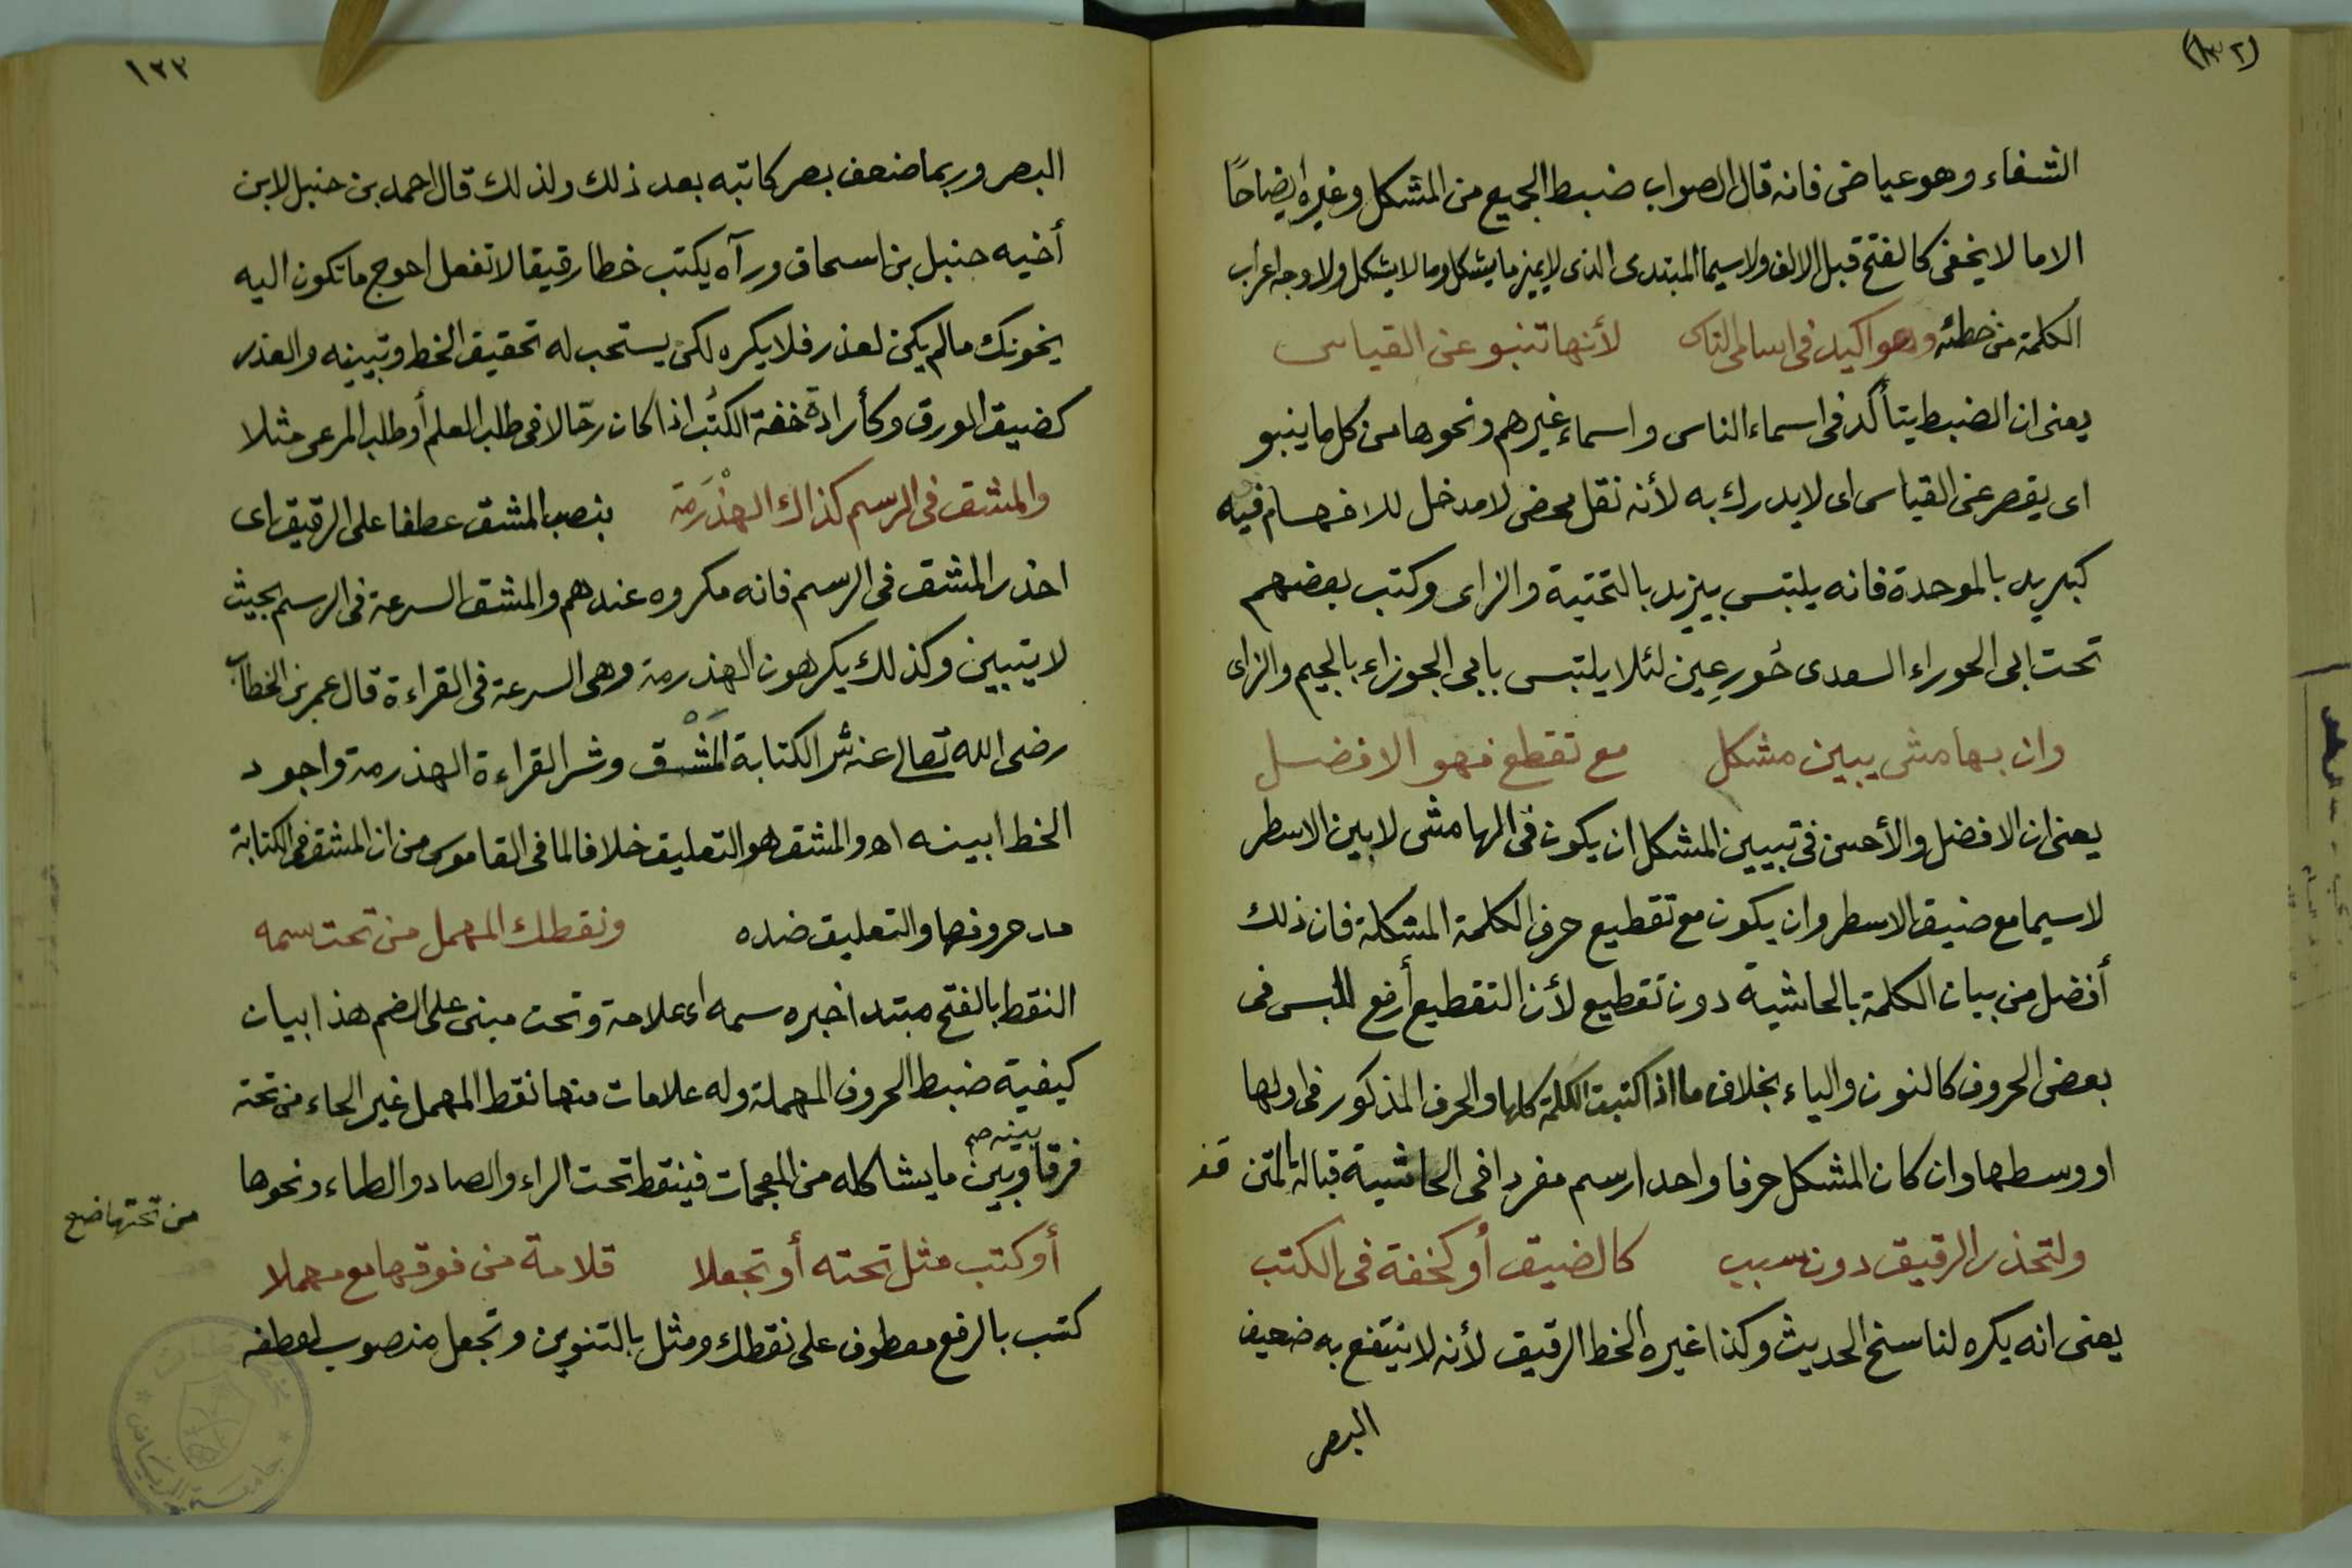 (١٣٢)
الشفاء وهو عياض فانه قال الصواب ضبط الجميع من المشكل وغيره ايضاحًا
الا ما لا يخفى كالفتح قبل الالف ولاسيما المبتدى الذى لا يميز ما يشكل وما لا يشكل ولا وجه اعراب
الكلمة من خطئه وهو اكيد فى اسامى الناس لأنها تنبو عن القياس
يعنى ان الضبط يتأكد فى اسماء الناس واسماء غيرهم ونحوها من كل ما ينبو
اى يقصر عن القياس اى لا يدرك به لأنه نقل محض لا مدخل للافهام فيه
كبريد بالموحدة فانه يلتبس بيزيد بالتحتية والزاى وكتب بعضهم
تحت ابى الحوراء السعدى حُور عِين لئلا يلتبس بابى الجوزاء بالجيم والزاى
وان بهامش يبين مشكل مع تقطع فهو الافضل
يعنى ان الافضل والأحسن فى تبيين المشكل ان يكون فى الهامش لا بين الاسطر
لاسيما مع ضيق الاسطر وان يكون مع تقطيع حرف الكلمة المشكلة فان ذلك
أفضل من بيان الكلمة بالحاشية دون تقطيع لأن التقطيع أرفع للبس فى
بعض الحروف كالنون والياء بخلاف ما اذا كتبت الكلمة كلها والحرف المذكور فى اولها
او وسطها وان كان المشكل حرفا واحدا رسم مفردا فى الحاشية قبالة المتن
ولتحذر الرقيق دون سبب كالضيق أو كخفة فى الكتب
يعنى انه يكره لناسخ الحديث وكذا غيره الخط الرقيق لأنه لا ينتفع به ضعيف
البصر
١٣٣
البصر وربما ضعف بصر كاتبه بعد ذلك ولذلك قال احمد بن حنبل لابن
أخيه حنبل بن اسحاق ورآه يكتب خطا رقيقا لا تفعل احوج ما تكون اليه
يخونك ما لم يكن لعذر فلا يكره لكن يستحب له تحقيق الخط وتبيينه والعذر
كضيق الورق وكأرادة خفة الكتُب اذا كان رحّالا فى طلب العلم أو طلب المرعى مثلا
والمشق فى الرسم كذاك الهذْرَمَة بنصب المشق عطفا على الرقيق اى
احذر المشق فى الرسم فانه مكروه عندهم والمشق السرعة فى الرسم بحيث
لا يتبين وكذلك يكرهون الهذرمة وهى السرعة فى القراءة قال عمر بن الخطاب
رضى الله تعالى عنه شر الكتابة المَشْق وشر القراءة الهذرمة واجود
الخط ابينه اه والمشق هو التعليق خلافا لما فى القاموس من ان المشق فى الكتابة
مد حروفها والتعليق ضده ونقطك المهمل من تحت سمه
النقط بالفتح مبتدا خبره سمه اى علامة وتحت مبنى على الضم هذا بيان
كيفية ضبط الحروف المهملة وله علامات منها نقط المهمل غير الحاء من تحته
فرقا بينه صح وبين ما يشاكله من المعجمات فينقط تحت الراء والصاد والطاء ونحوها
من تحتها صح
أو كتب مثل تحته أو تجعلا قلامة من فوقها مع مهملا
كتب بالرفع معطوف على نقطك ومثل بالتنوين وتجعل منصوب لعطفه
جامعة الرياض